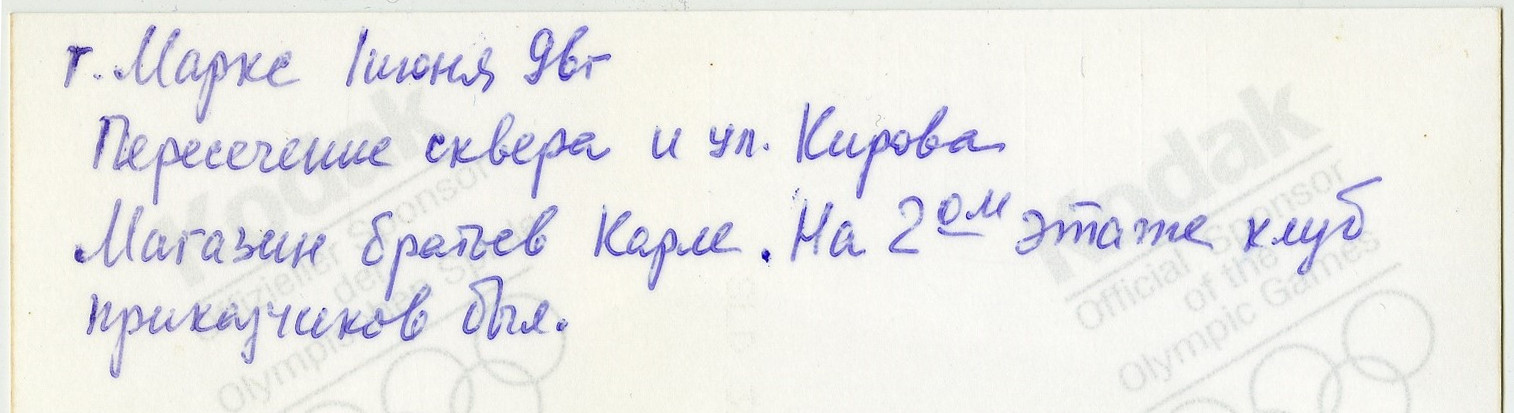 г. Маркс 1 июня 98г
Пересечение сквера и ул. Кирова
Магазин братьев Карле. На 2ом этаже клуб
приказчиков был.
Kodak
Offizieller Sponsor
der
Olympischen Spiele
Kodak
Official Sponsor
of the
Olympic Games